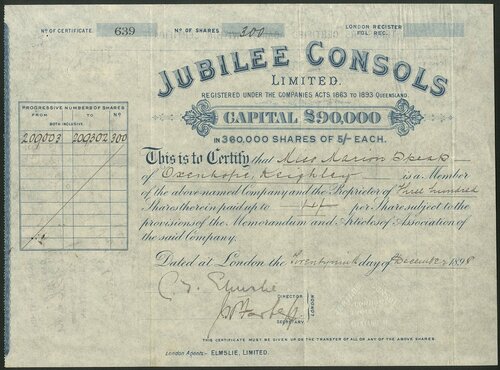 Nº OF CERTIFICATE 639 Nº OF SHARES 300 LONDON REGISTER
FOL. REC.
JUBILEE CONSOLS
LIMITED.
REGISTERED UNDER THE COMPANIES ACTS, 1863 TO 1893 QUEENSLAND.
CAPITAL £90,000
IN 360,000 SHARES OF 5/- EACH.
PROGRESSIVE NUMBERS OF SHARES
FROM TO Nº
BOTH INCLUSIVE.
209003 209302 300
This is to Certify that Miss Marion Speak
of Oxenhope, Keighley is a Member
of the above named Company and the Proprietor of Three hundred
Shares therein paid up to 4/- per Share subject to the
provisions of the Memorandum and Articles of Association of
the said Company.
Dated at London the day of December 1898
DIRECTOR
LONDON
SECRETARY
THIS CERTIFICATE MUST BE GIVEN UP ON THE TRANSFER OF ALL OR ANY OF THE ABOVE SHARES
London Agents:- ELMSLIE, LIMITED.